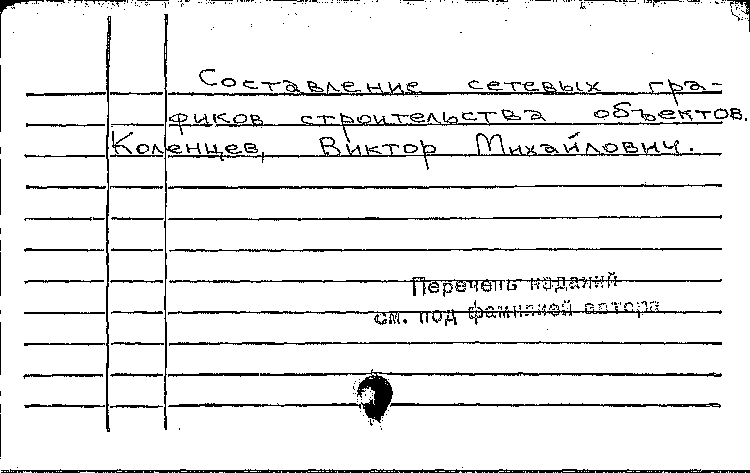 Составление сетевых гра-
фиков строительства объектов.
Коленцев, Виктор Михайлович.
Перечень изданий
см. под фамилией автора